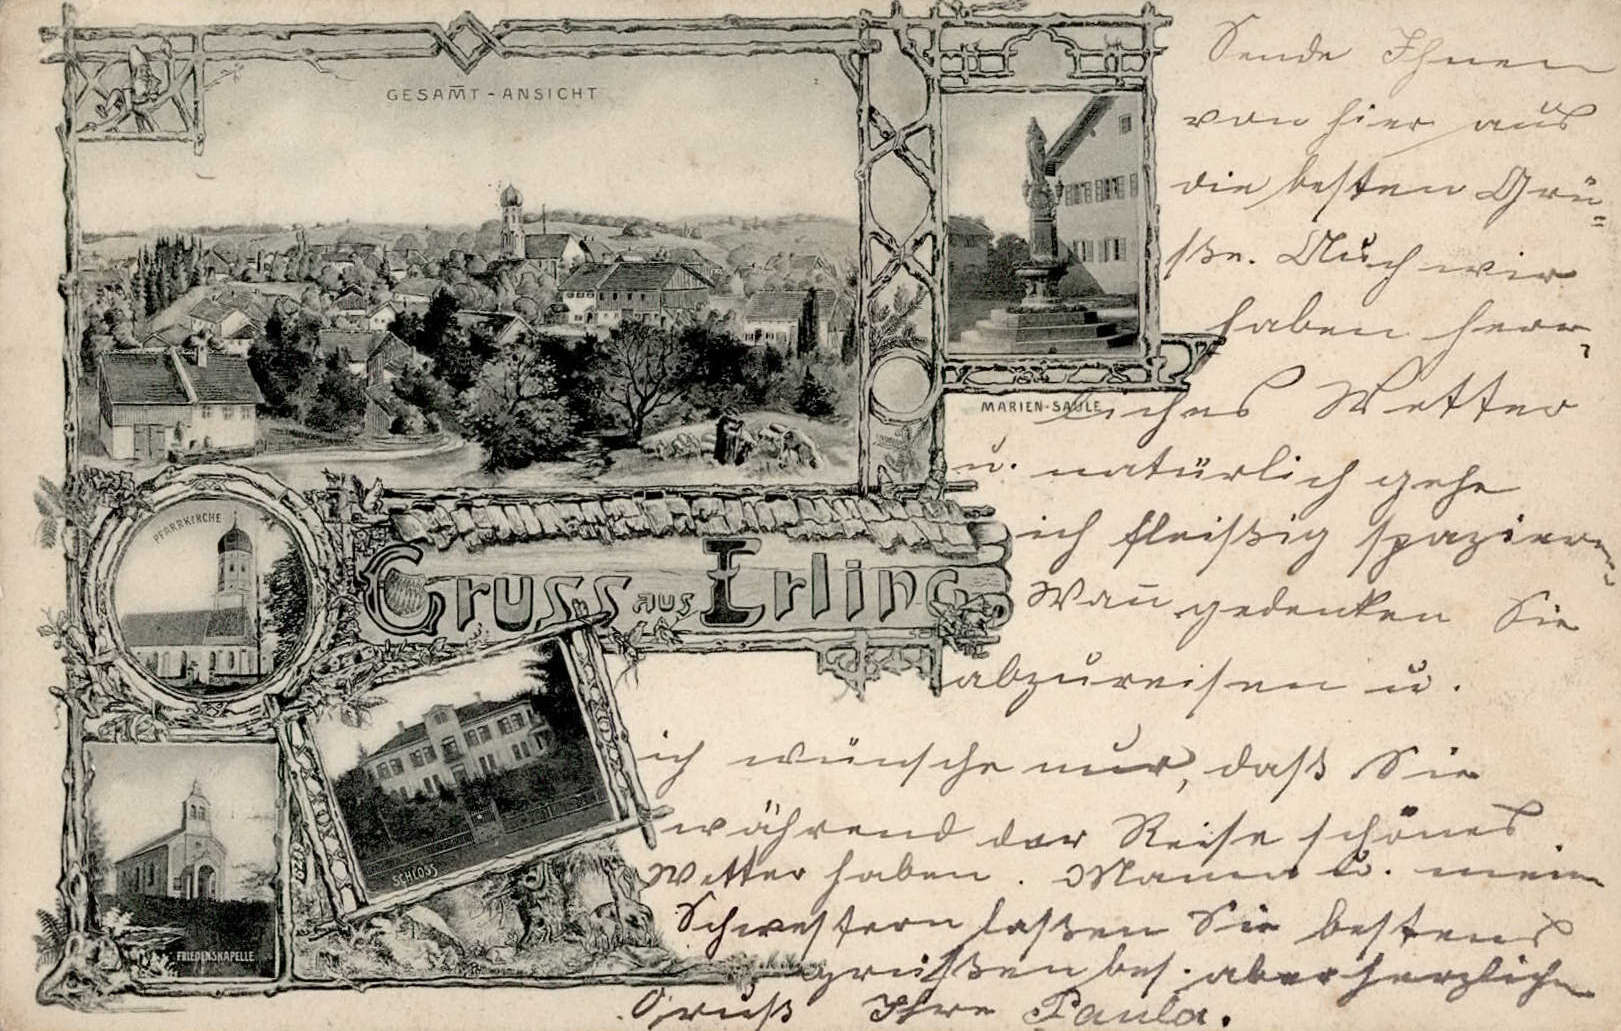 GESAMT-ANSICHT
MARIEN-SÄULE
PFARRKIRCHE
Gruss aus Erling
SCHLOSS
FRIEDENSKAPELLE
Sende Ihnen
von hier aus
die besten Grü=
ße. Auch wir
haben herr-
liches Wetter
u. natürlich gehe
ich fleißig spazieren
Wann gedenken Sie
abzureisen u.
ich wünsche nur, daß Sie
während der Reise schönes
Wetter haben. Mama u. meine
Schwestern laßen Sie bestens
grüßen bes. aber herzlichen
Gruß Ihre Paula.